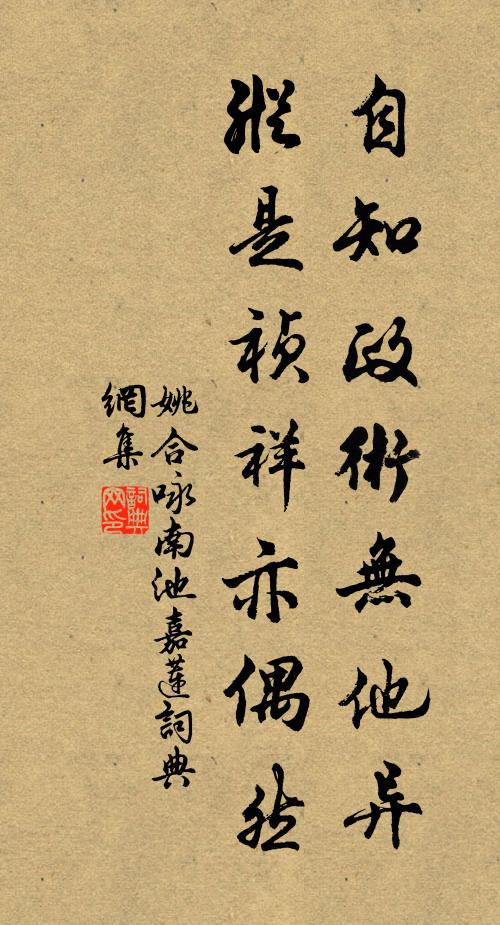 自知政術無他异
縱是禎祥亦偶然
姚合咏南池嘉蓮詞典
網集
詞典網印